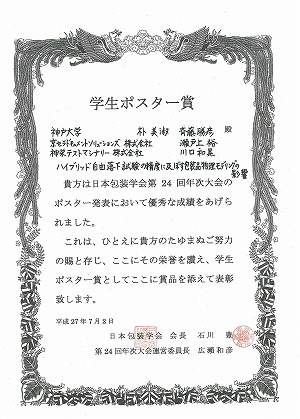 学生ポスター賞
神戸大学 朴 美淑 斉藤勝彦 殿
京セラドキュメントソリューションズ 株式会社 瀬戸上 裕
神栄テストマシナリー 株式会社 川口和晃
ハイブリッド自由落下試験の精度に及ぼす包装品物理モデリングの影響
貴方は日本包装学会第24回年次大会の
ポスター発表において優秀な成績をあげら
れました。
これは、ひとえに貴方のたゆまぬご努力
の賜と存じ、ここにその栄誉を讃え、学生
ポスター賞としてここに賞品を添えて表彰
致します。
平成27年7月2日
日本包装学会 会長 石川 豊
第24回年次大会運営委員長 広瀬和彦